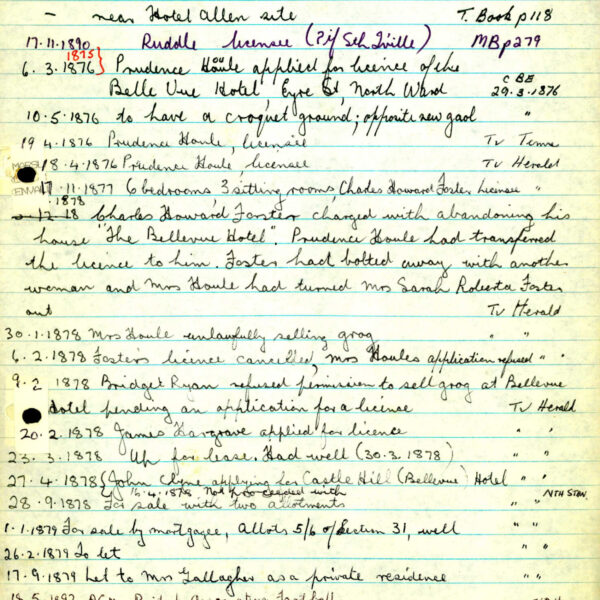 - near Hotel Allen site T. Book p118
17.11.1890 Ruddle licensee (P. of Sth T'ville) MBp279
1875
6. 3. 1876} Prudence Houle applied for licence of the
Belle Vue Hotel, Eyre St, North Ward CBE 29.3.1876
10.5.1876 to have a croquet ground; opposite new gaol "
19 4.1876 Prudence Houle, licensee Tv Times
18.4.1876 Prudence Houle, licensee Tv Herald
17.11.1877 6 bedrooms, 3 sitting rooms, Charles Howard Foster licensee "
1878
12 18 Charles Howard Forster charged with abandoning his
house "The Bellevue Hotel". Prudence Houle had transferred
the licence to him. Foster had bolted away with another
woman and Mrs Houle had turned Mrs Sarah Roberta Foster
out Tv Herald
30.1.1878 Mrs Houle unlawfully selling grog " "
6.2.1878 Foster's licence cancelled, Mrs Houles application refused " "
9.2 1878 Bridget Ryan refused permission to sell grog at Bellevue
Hotel pending an application for a license Tv Herald
20.2.1878 James Hargrave applied for licence " "
23.3.1878 Up for lease. Had well (30.3.1878) " "
27.4.1878 {John Clyne applying for Castle Hill (Bellevue) Hotel " "
16.4.1878 Not proceeded with
28.9.1878 For sale with two allotments " " NTH STAN.
1.1.1879 For sale by mortgagee, Allots 5/6 of Section 31, well " "
26.2.1879 To let " "
17.9.1879 Let to Mrs Gallagher as a private residence " "